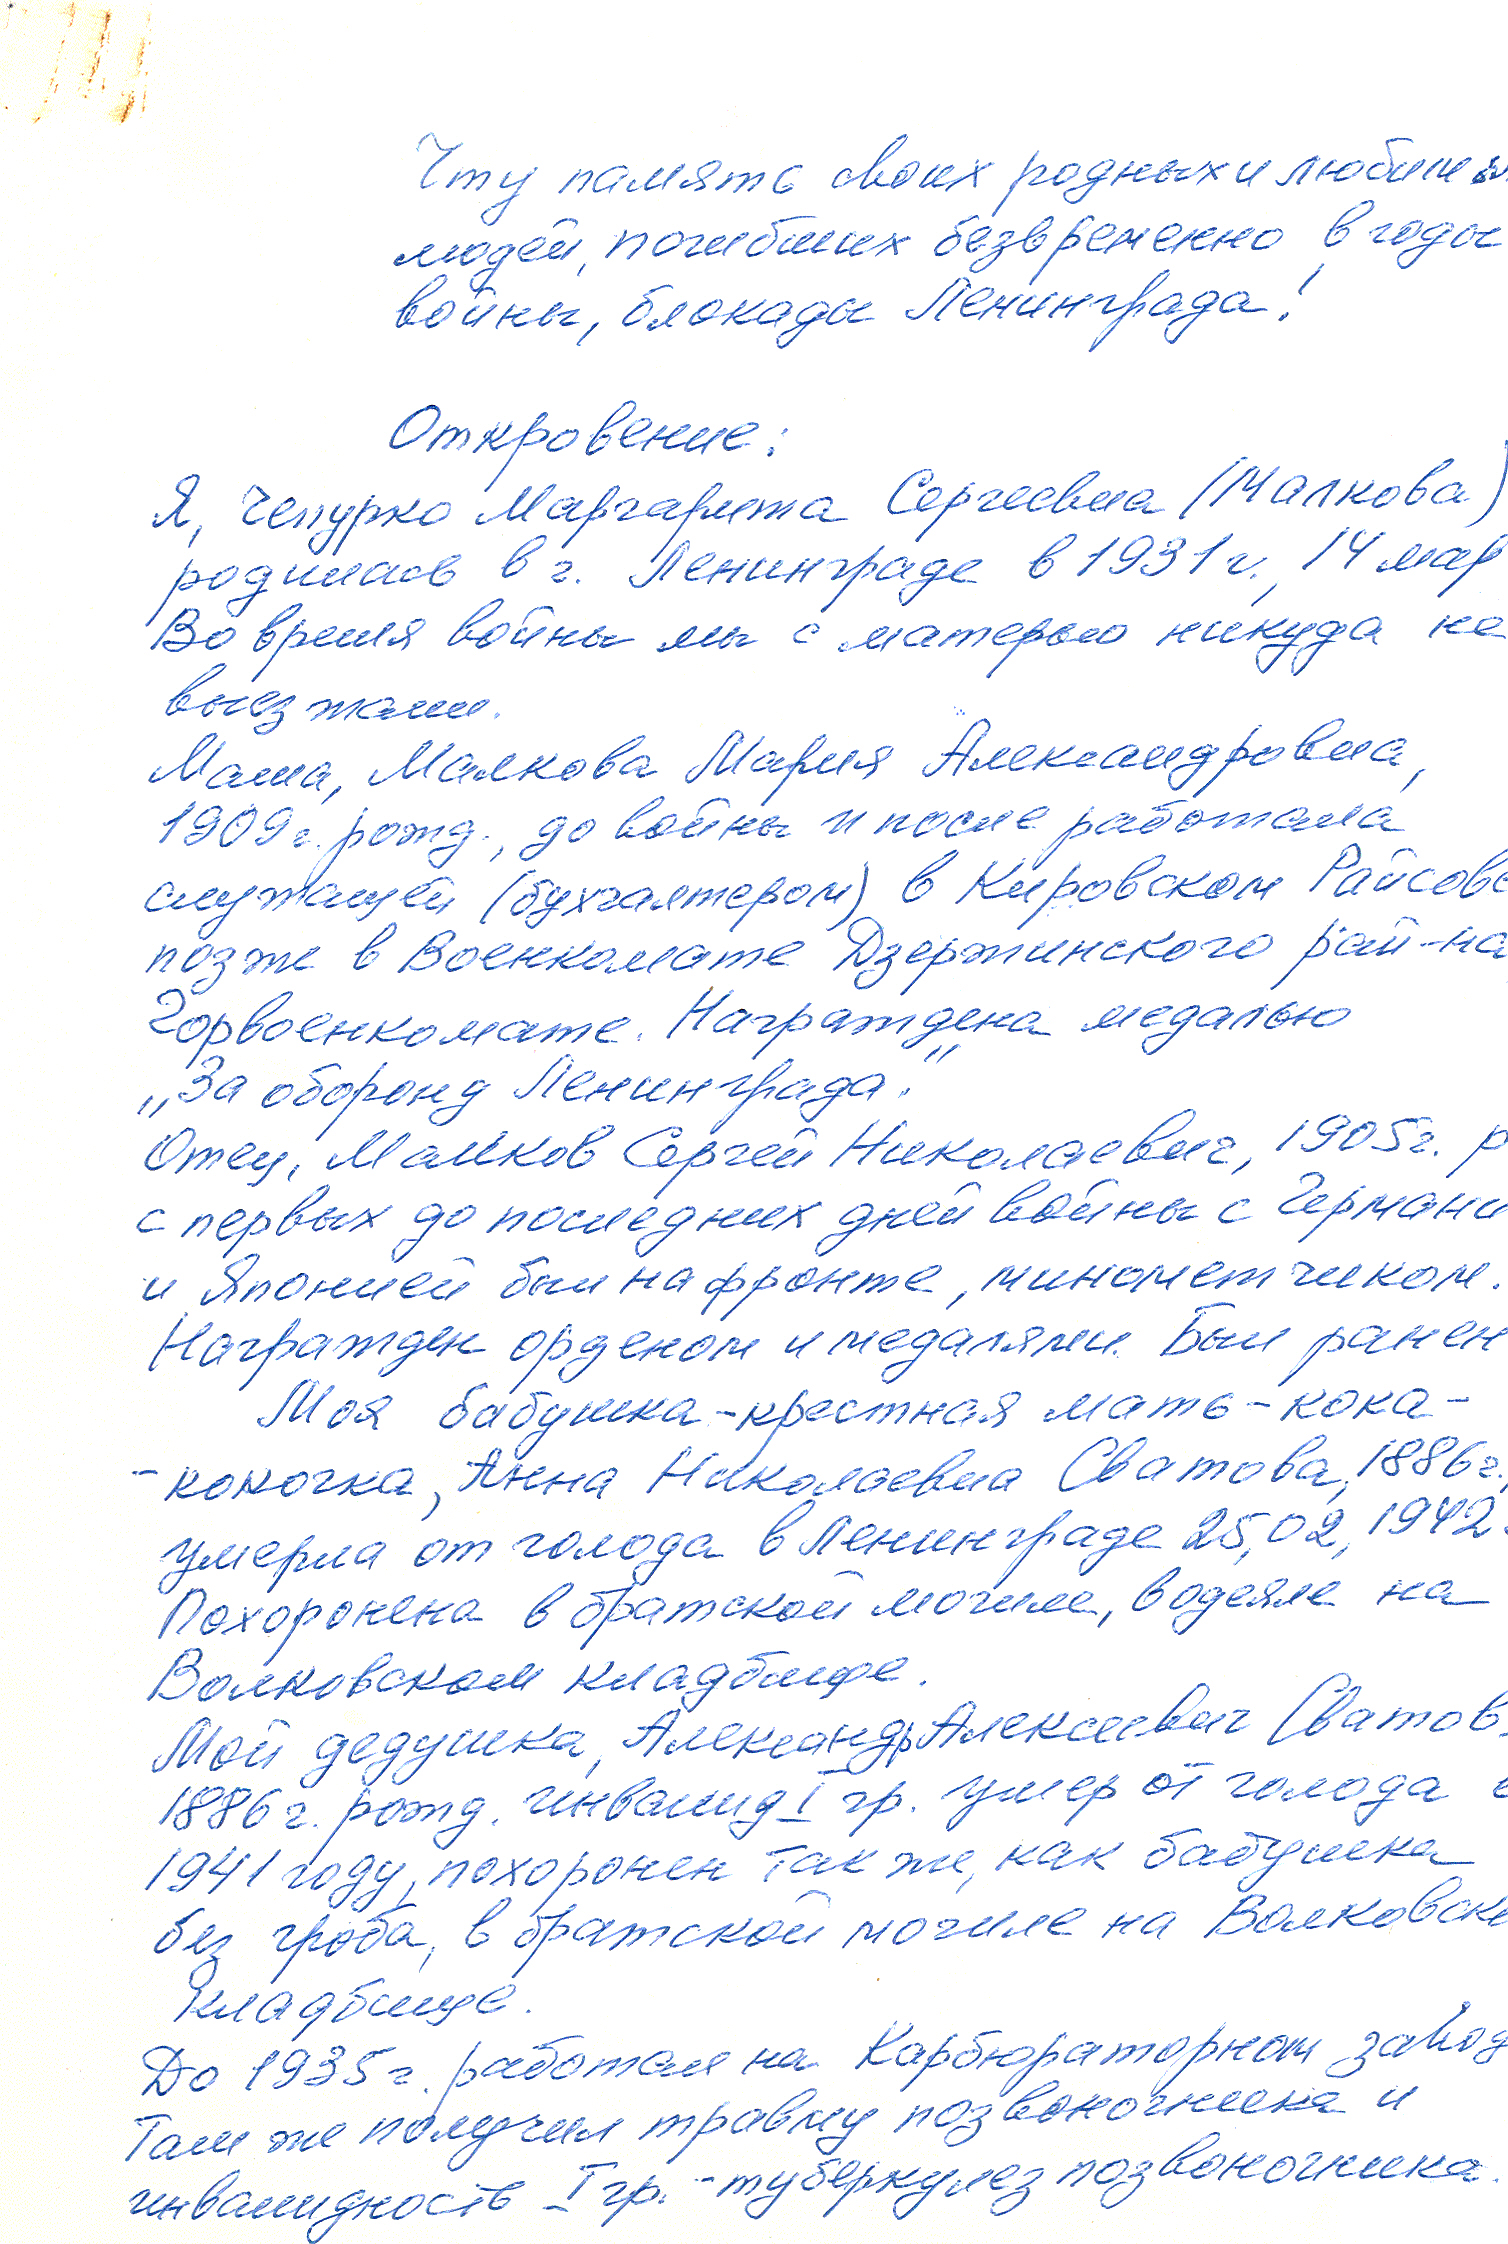 Чту память своих родных и любимы
людей, погибших безвременно в годы
войны, блокады Ленинграда!
Откровение:
Я, Чепурко Маргарита Сергеевна (Малкова)
родилась в г. Ленинграде в 1931 г., 14 мар
Во время войны мы с матерью никуда не
выезжали.
Мама, Малкова Мария Александровна,
1909 г. рожд., до войны и после работала
служащей (бухгалтером) в Кировском Райсове
позже в Военкомате Дзержинского рай-на
Горвоенкомате. Награждена медалью
„За оборону Ленинграда."
Отец, Малков Сергей Николаевич, 1905 г. р
с первых до последних дней войны с Германи
и Японией был на фронте, минометчиком.
Награжден орденом и медалями. Был ранен
Моя бабушка-крестная мать-кока-
-кокочка, Анна Николаевна Сватова, 1886 г.,
умерла от голода в Ленинграде 25,02,1942.
Похоронена в братской могиле, в одеяле на
Волковском кладбище.
Мой дедушка, Александр Алексеевич Сватов,
1886 г. рожд. инвалид I гр. умер от голода в
1941 году, похоронен так же, как бабушка
без гроба, в братской могиле на Волковск
кладбище.
До 1935 г. работал на Карбюраторном завод
Там же получил травму позвоночника и
инвалидность I гр. - туберкулез позвоночника.